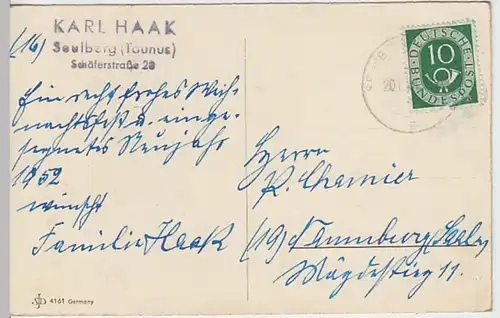 KARL HAAK
Seulberg (Taunus)
Schäferstraße 28
(16)
Ein recht frohes Weih-
nachtsfest u. einge-
segnetes Neujahr
1952
wünscht
Familie Haak
DEUTSCHE
BUNDESPOST
10
20.
Herrn
R. Chamier
(19) Naumburg/Saale,
Mägdestieg 11.
4161 Germany